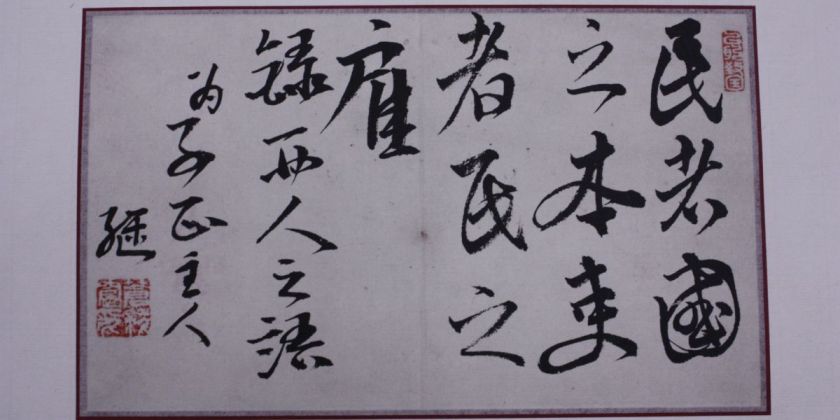 民者國
之本吏
者民之
雇
錄人之語
为子正主人